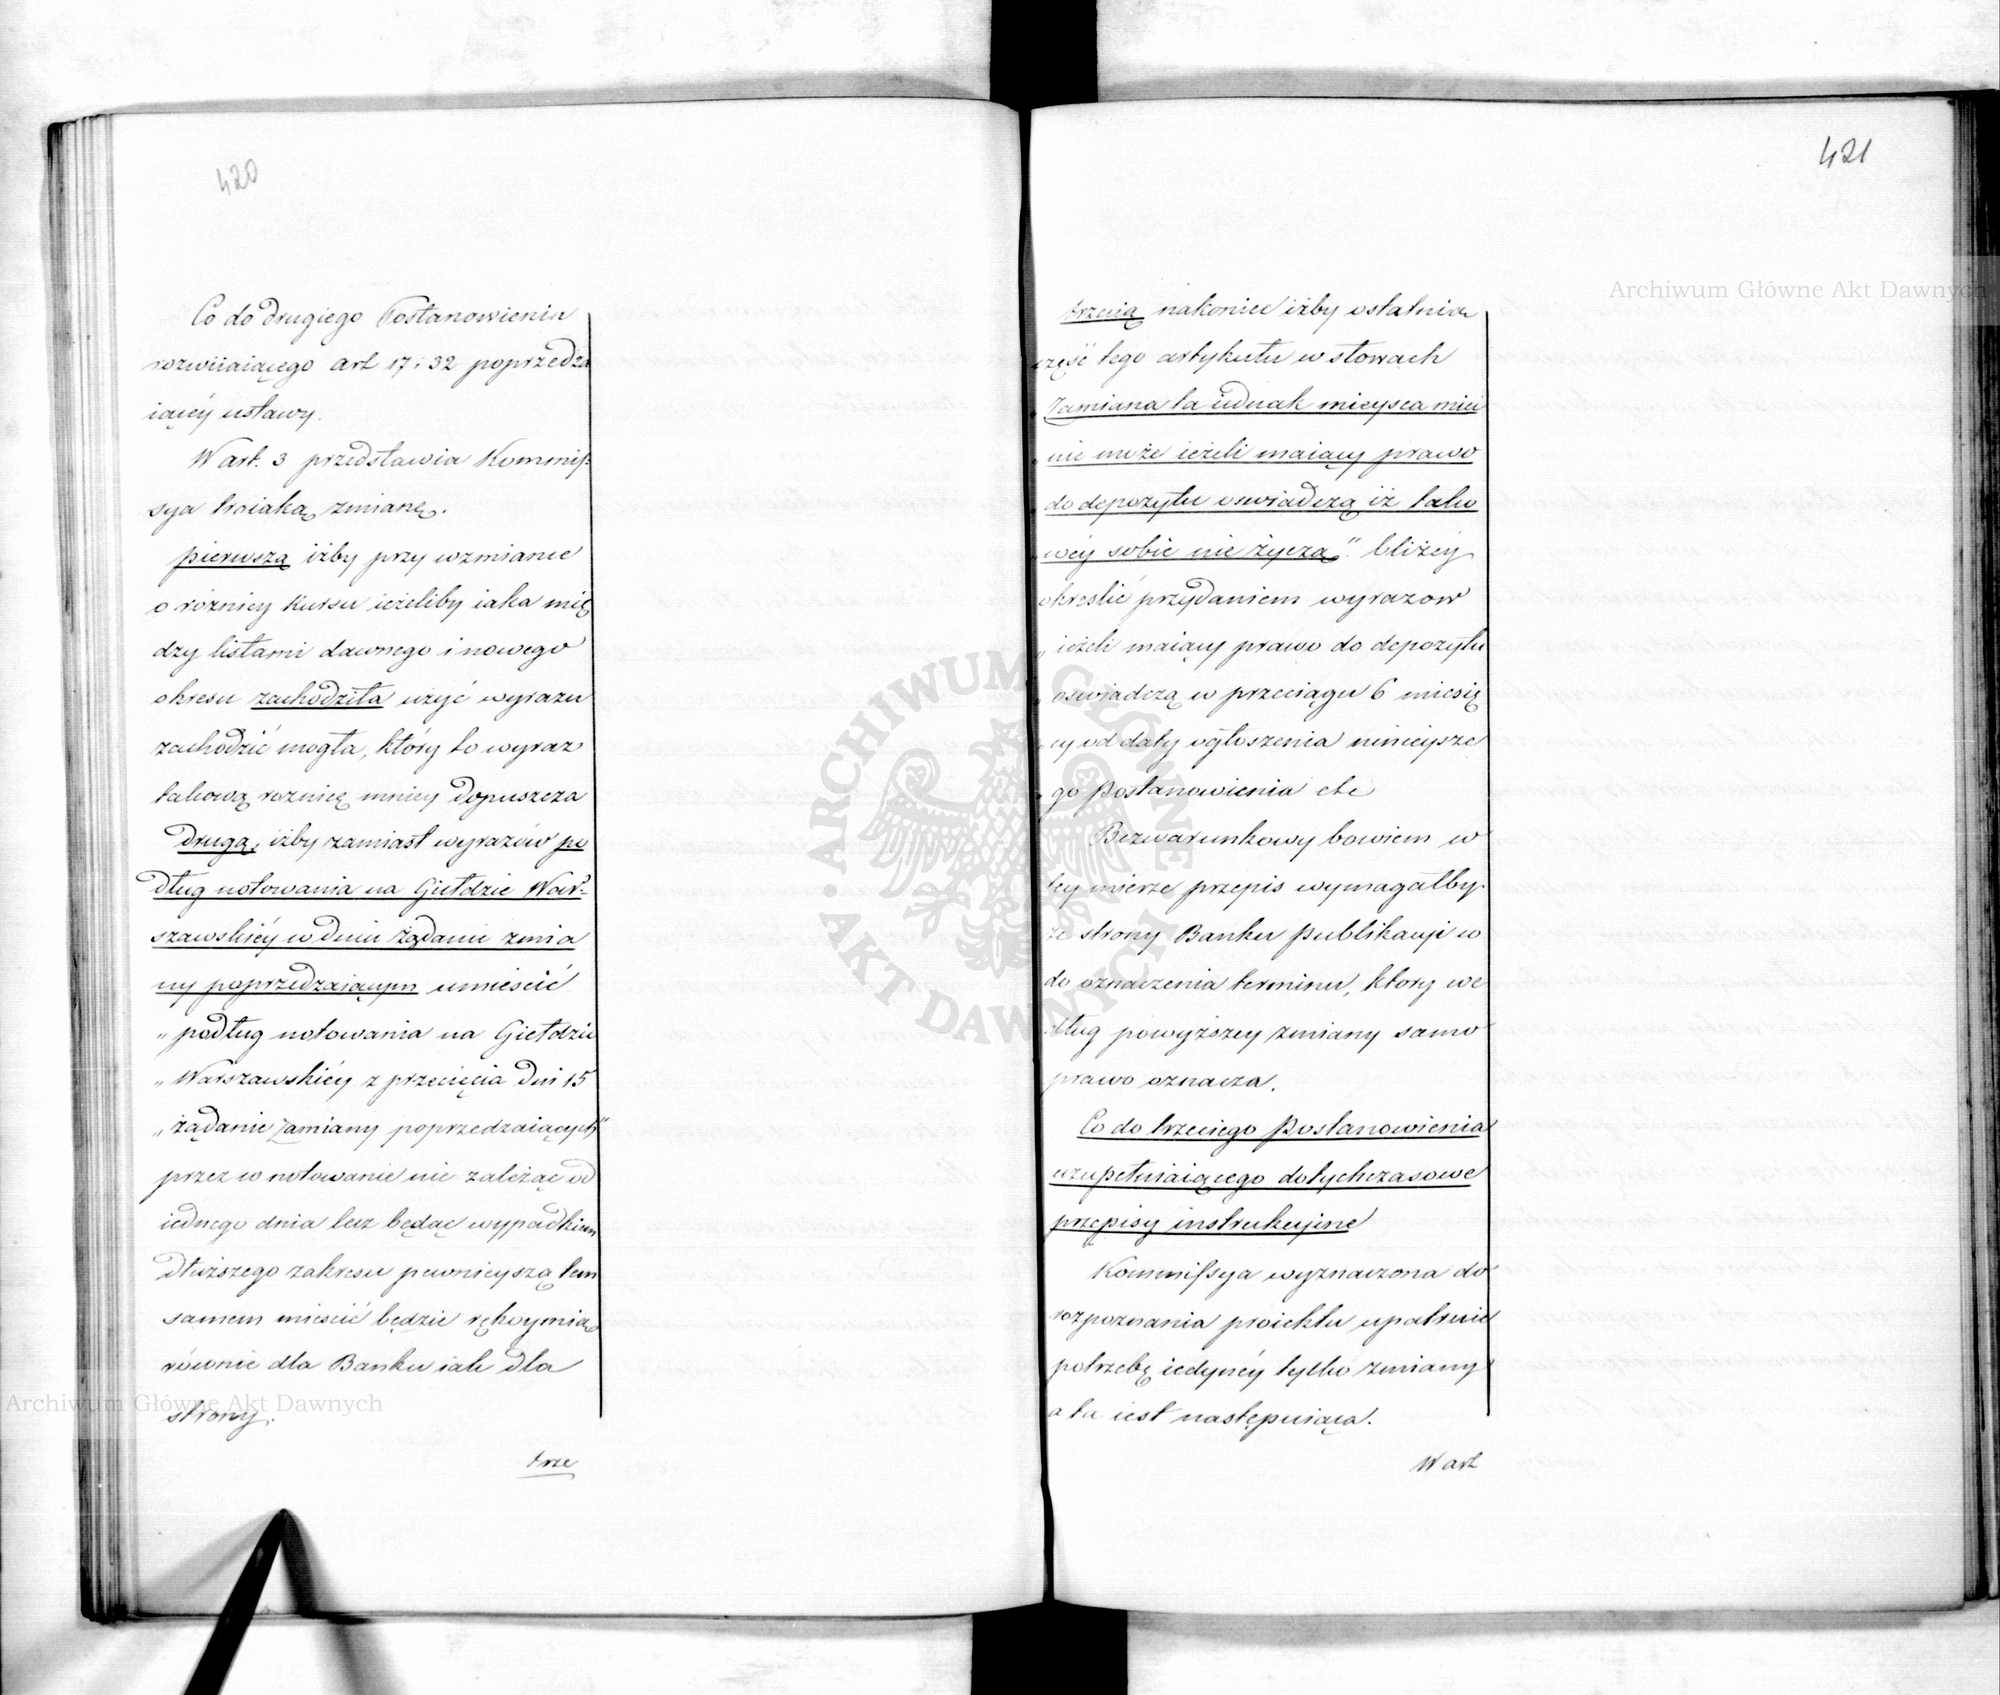 420
Co do drugiego Postanowienia
rozwiiaiącego art 17 i 32 poprzedza
iącéy ustawy.
W art. 3 przedstawia Kommis=
sya troiaką zmianę.
pierwszą iżby przy wzmiance
o różnicy kursu ieżeliby iaka mię
dzy listami dawnego i nowego
okresu zachodziła użyć wyrazu
zachodzić mogła, który to wyraz
takową roznicę mniey dopuszcza
drugą, iżby zamiast wyrazów po
dług notowania na Giełdzie War=
szawskiéy w dniu żądanie zmia
ny poprzedzaiącym umieścić
„podług notowania na Giełdzie
„Warszawskiéy z przecięcia dni 15
„żądanie zamiany poprzedzaiących"
przez co notowanie nie zależąc od
iednego dnia lecz będąc wypadkiem
dłuższego zakresu pewnieyszą tem
samem mieścić będzie rękoymią
równie dla Banku iak dla
strony.
trze
421
trzecią nakoniec iżby ostatnia
część tego artykułu w słowach
„Zamiana ta iednak mieysca mieć
„nie może ieżeli maiący prawo
„do depozytu oswiadczą iż tako
„wéy sobie nie życzą". bliżéy
okreslić przydaniem wyrazow
„ieżeli maiący prawo do depozytu
„oswiadczą w przeciągu 6 miesię
„cy od daty ogłoszenia ninieysze
„go Postanowienia etc
Bezwarunkowy bowiem w
tey mierze przepis wymagałby
ze strony Banku publikacyi co
do oznaczenia terminu, ktory we
dług powyższey zmiany samo
prawo oznacza.
Co do trzeciego Postanowienia
uzupełniaiącego dotychczasowe
przepisy instrukcyjne
Kommissya wyznaczona do
rozpoznania proiektu upatruie
potrzebę iedynéy tylko zmiany
a ta iest następuiąca.
W art
Archiwum Główne Akt Dawnych
Archiwum Główne Akt Dawnych
ARCHIWUM GŁÓWNE AKT DAWNYCH